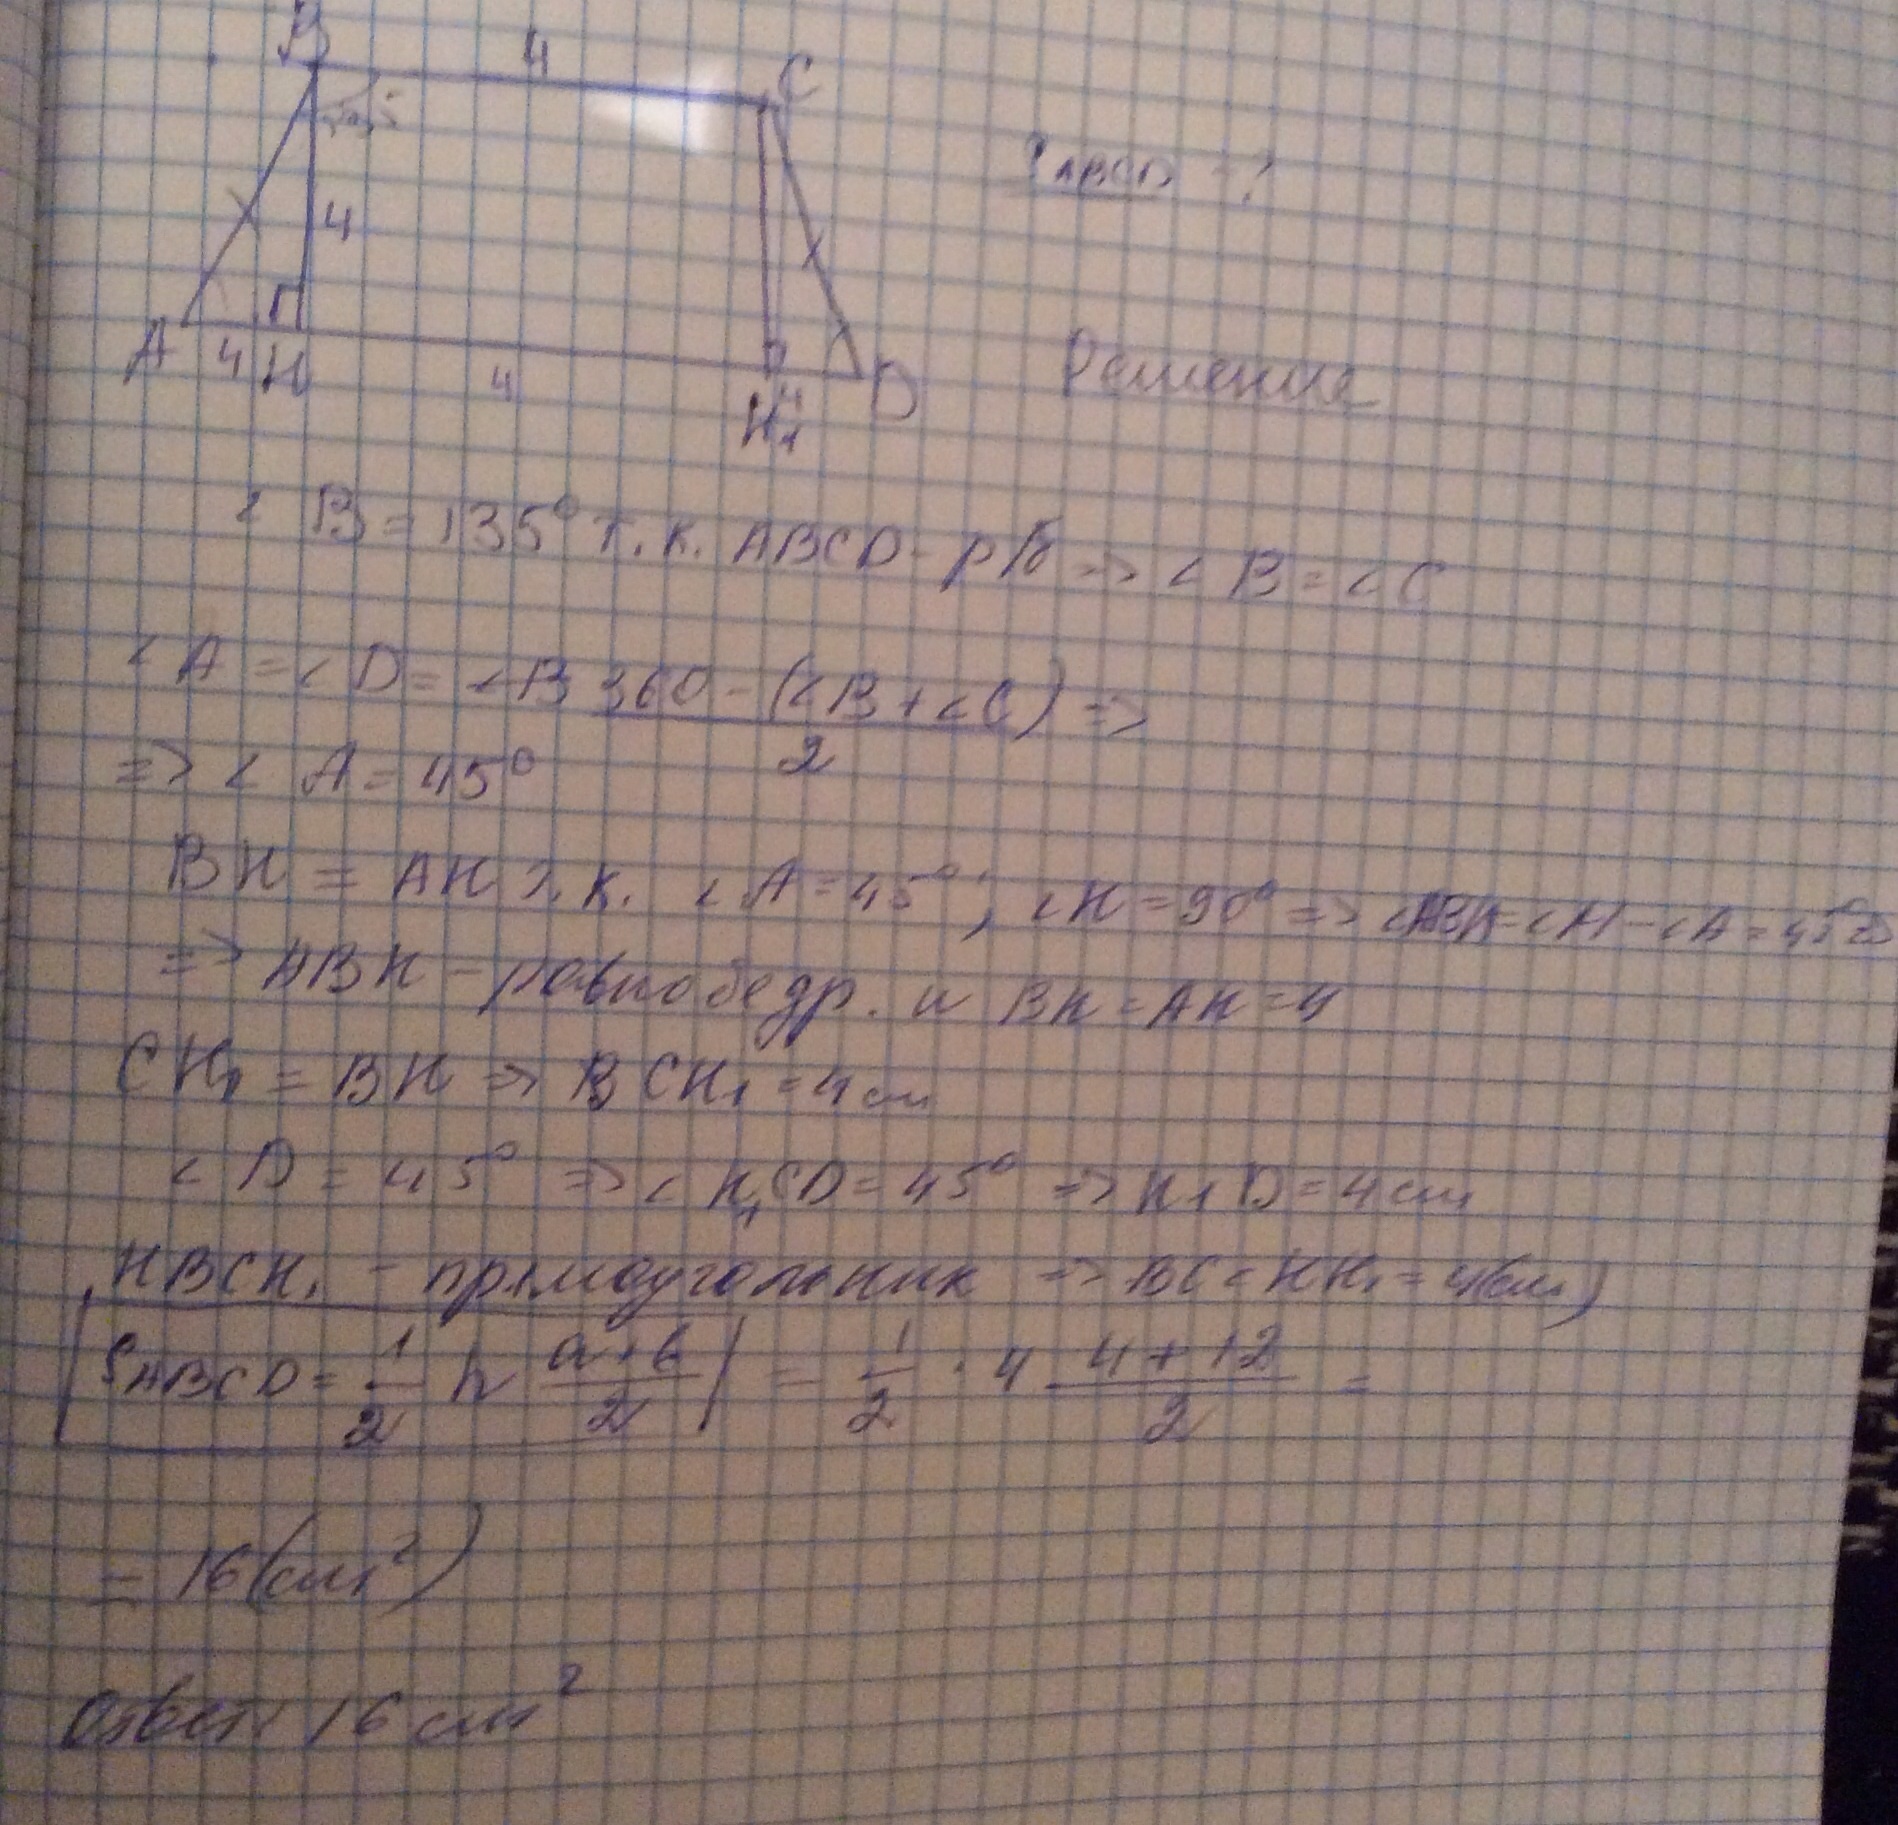 B 4 C
4
A 4 H 4 H₁ 4 D
S ABCD - ?
Решение
∠ B = 135° т.к. ABCD - р/б => ∠ B = ∠ C
∠ A = ∠ D = ∠B 360 - (∠B + ∠C) / 2 =>
=> ∠ A = 45°
BH = AH т.к. ∠ A = 45°; ∠H = 90° => ∠ABH = ∠H - ∠A = 45° =>
=> ABH - равнобедр. и BH = AH = 4
CH₁ = BH => B CH₁ = 4 см
∠ D = 45° => ∠ H₁CD = 45° => H₁D = 4 см
HBCH₁ - прямоугольник => BC = HH₁ = 4(см)
S ABCD = 1/2 h a+b/2 = 1/2 · 4 4+12/2 =
= 16(см²)
Ответ: 16 см²